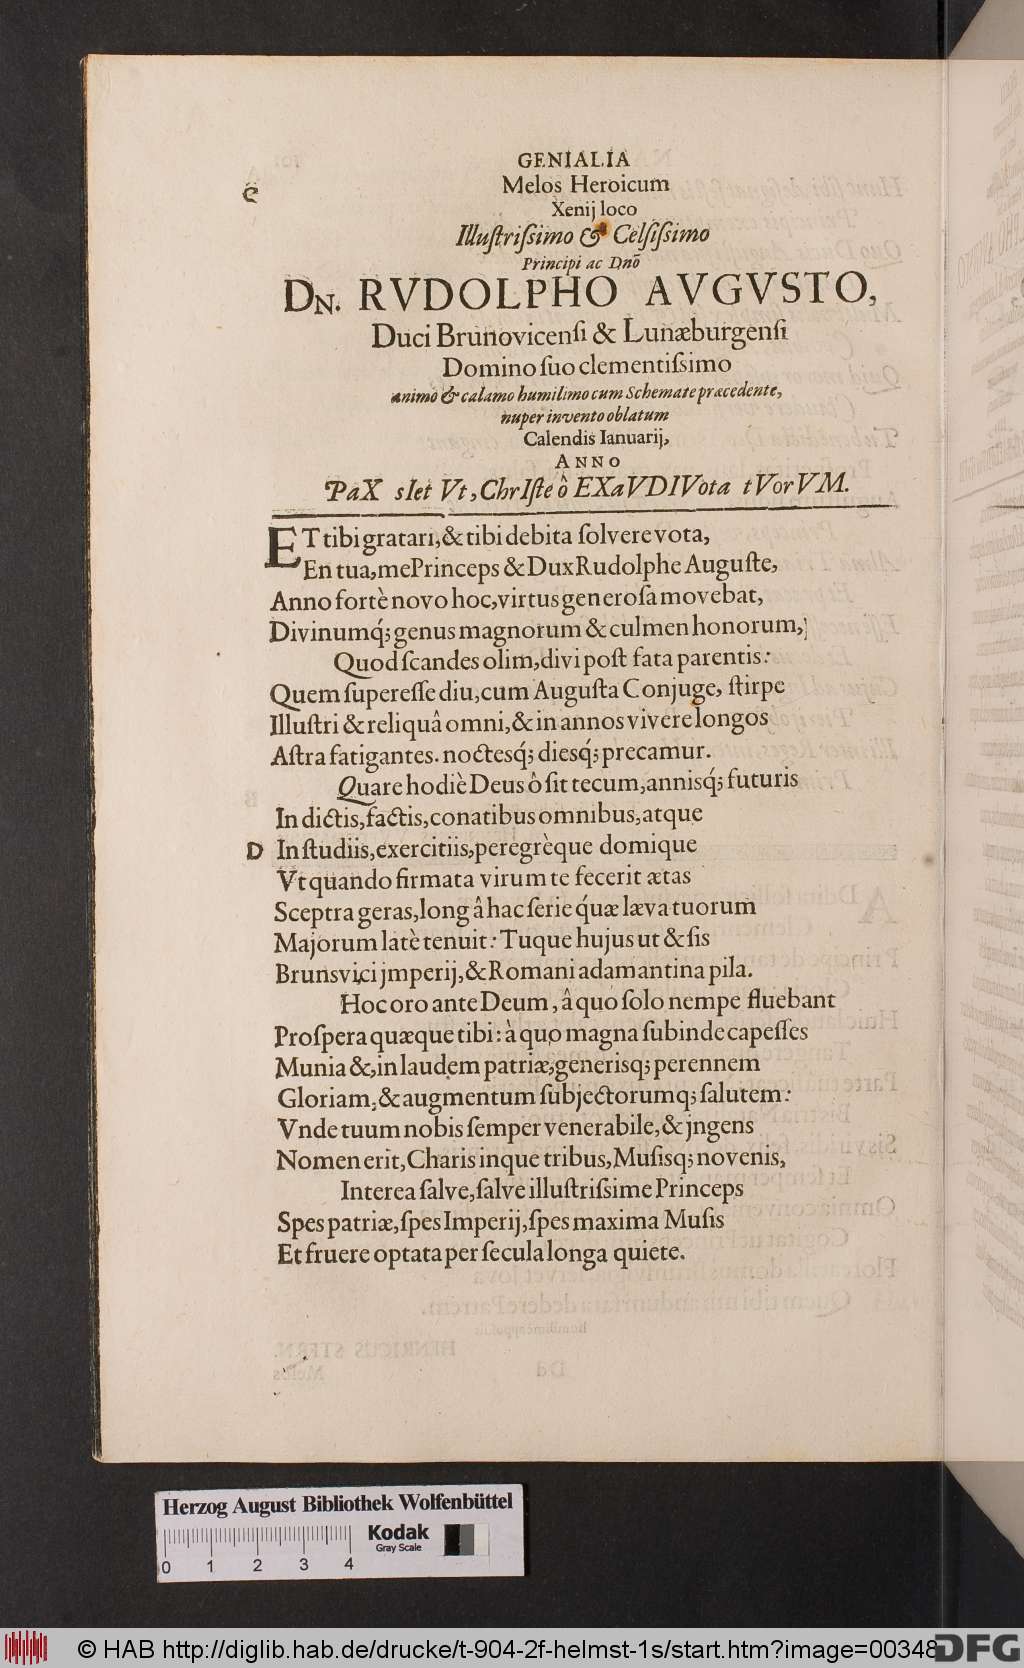 GENIALIA
C
Melos Heroicum
Xenij loco
Illuſtriſsimo & Celſiſsimo
Principi ac Dnõ
DN. RVDOLPHO AVGVSTO,
Duci Brunovicenſi & Lunæburgenſi
Domino ſuo clementiſsimo
animo & calamo humilimo cum Schemate præcedente,
nuper invento oblatum
Calendis Ianuarij,
ANNO
PaX sIet Vt, ChrIſte ô EXaVDIVota tVorVM.
ET tibi gratari, & tibi debita ſolvere vota,
En tua, me Princeps & Dux Rudolphe Auguſte,
Anno fortè novo hoc, virtus generoſa movebat,
Divinumq́; genus magnorum & culmen honorum,
Quod ſcandes olim, divi poſt fata parentis:
Quem ſupereſſe diu, cum Auguſta Conjuge, ſtirpe
Illuſtri & reliquâ omni, & in annos vivere longos
Aſtra fatigantes. noctesq́; diesq́; precamur.
Quare hodiè Deus ô ſit tecum, annisq́; futuris
In dictis, factis, conatibus omnibus, atque
D In ſtudiis, exercitiis, peregrèque domique
Vt quando firmata virum te fecerit ætas
Sceptra geras, long â hac ſerie q́uæ læva tuorum
Majorum latè tenuit: Tuque hujus ut & ſis
Brunsvici jmperij, & Romani adamantina pila.
Hoc oro ante Deum, â quo ſolo nempe fluebant
Proſpera quæque tibi: à quo magna ſubinde capeſſes
Munia &, in laudem patriæ, generisq; perennem
Gloriam, & augmentum ſubjectorumq; ſalutem:
Vnde tuum nobis ſemper venerabile, & jngens
Nomen erit, Charisinque tribus, Muſisq; novenis,
Interea ſalve, ſalve illuſtriſsime Princeps
Spes patriæ, ſpes Imperij, ſpes maxima Muſis
Et fruere optata per ſecula longa quiete.
Herzog August Bibliothek Wolfenbüttel
Kodak
Gray Scale
0 1 2 3 4
© HAB http://diglib.hab.de/drucke/t-904-2f-helmst-1s/start.htm?image=00348
DFG